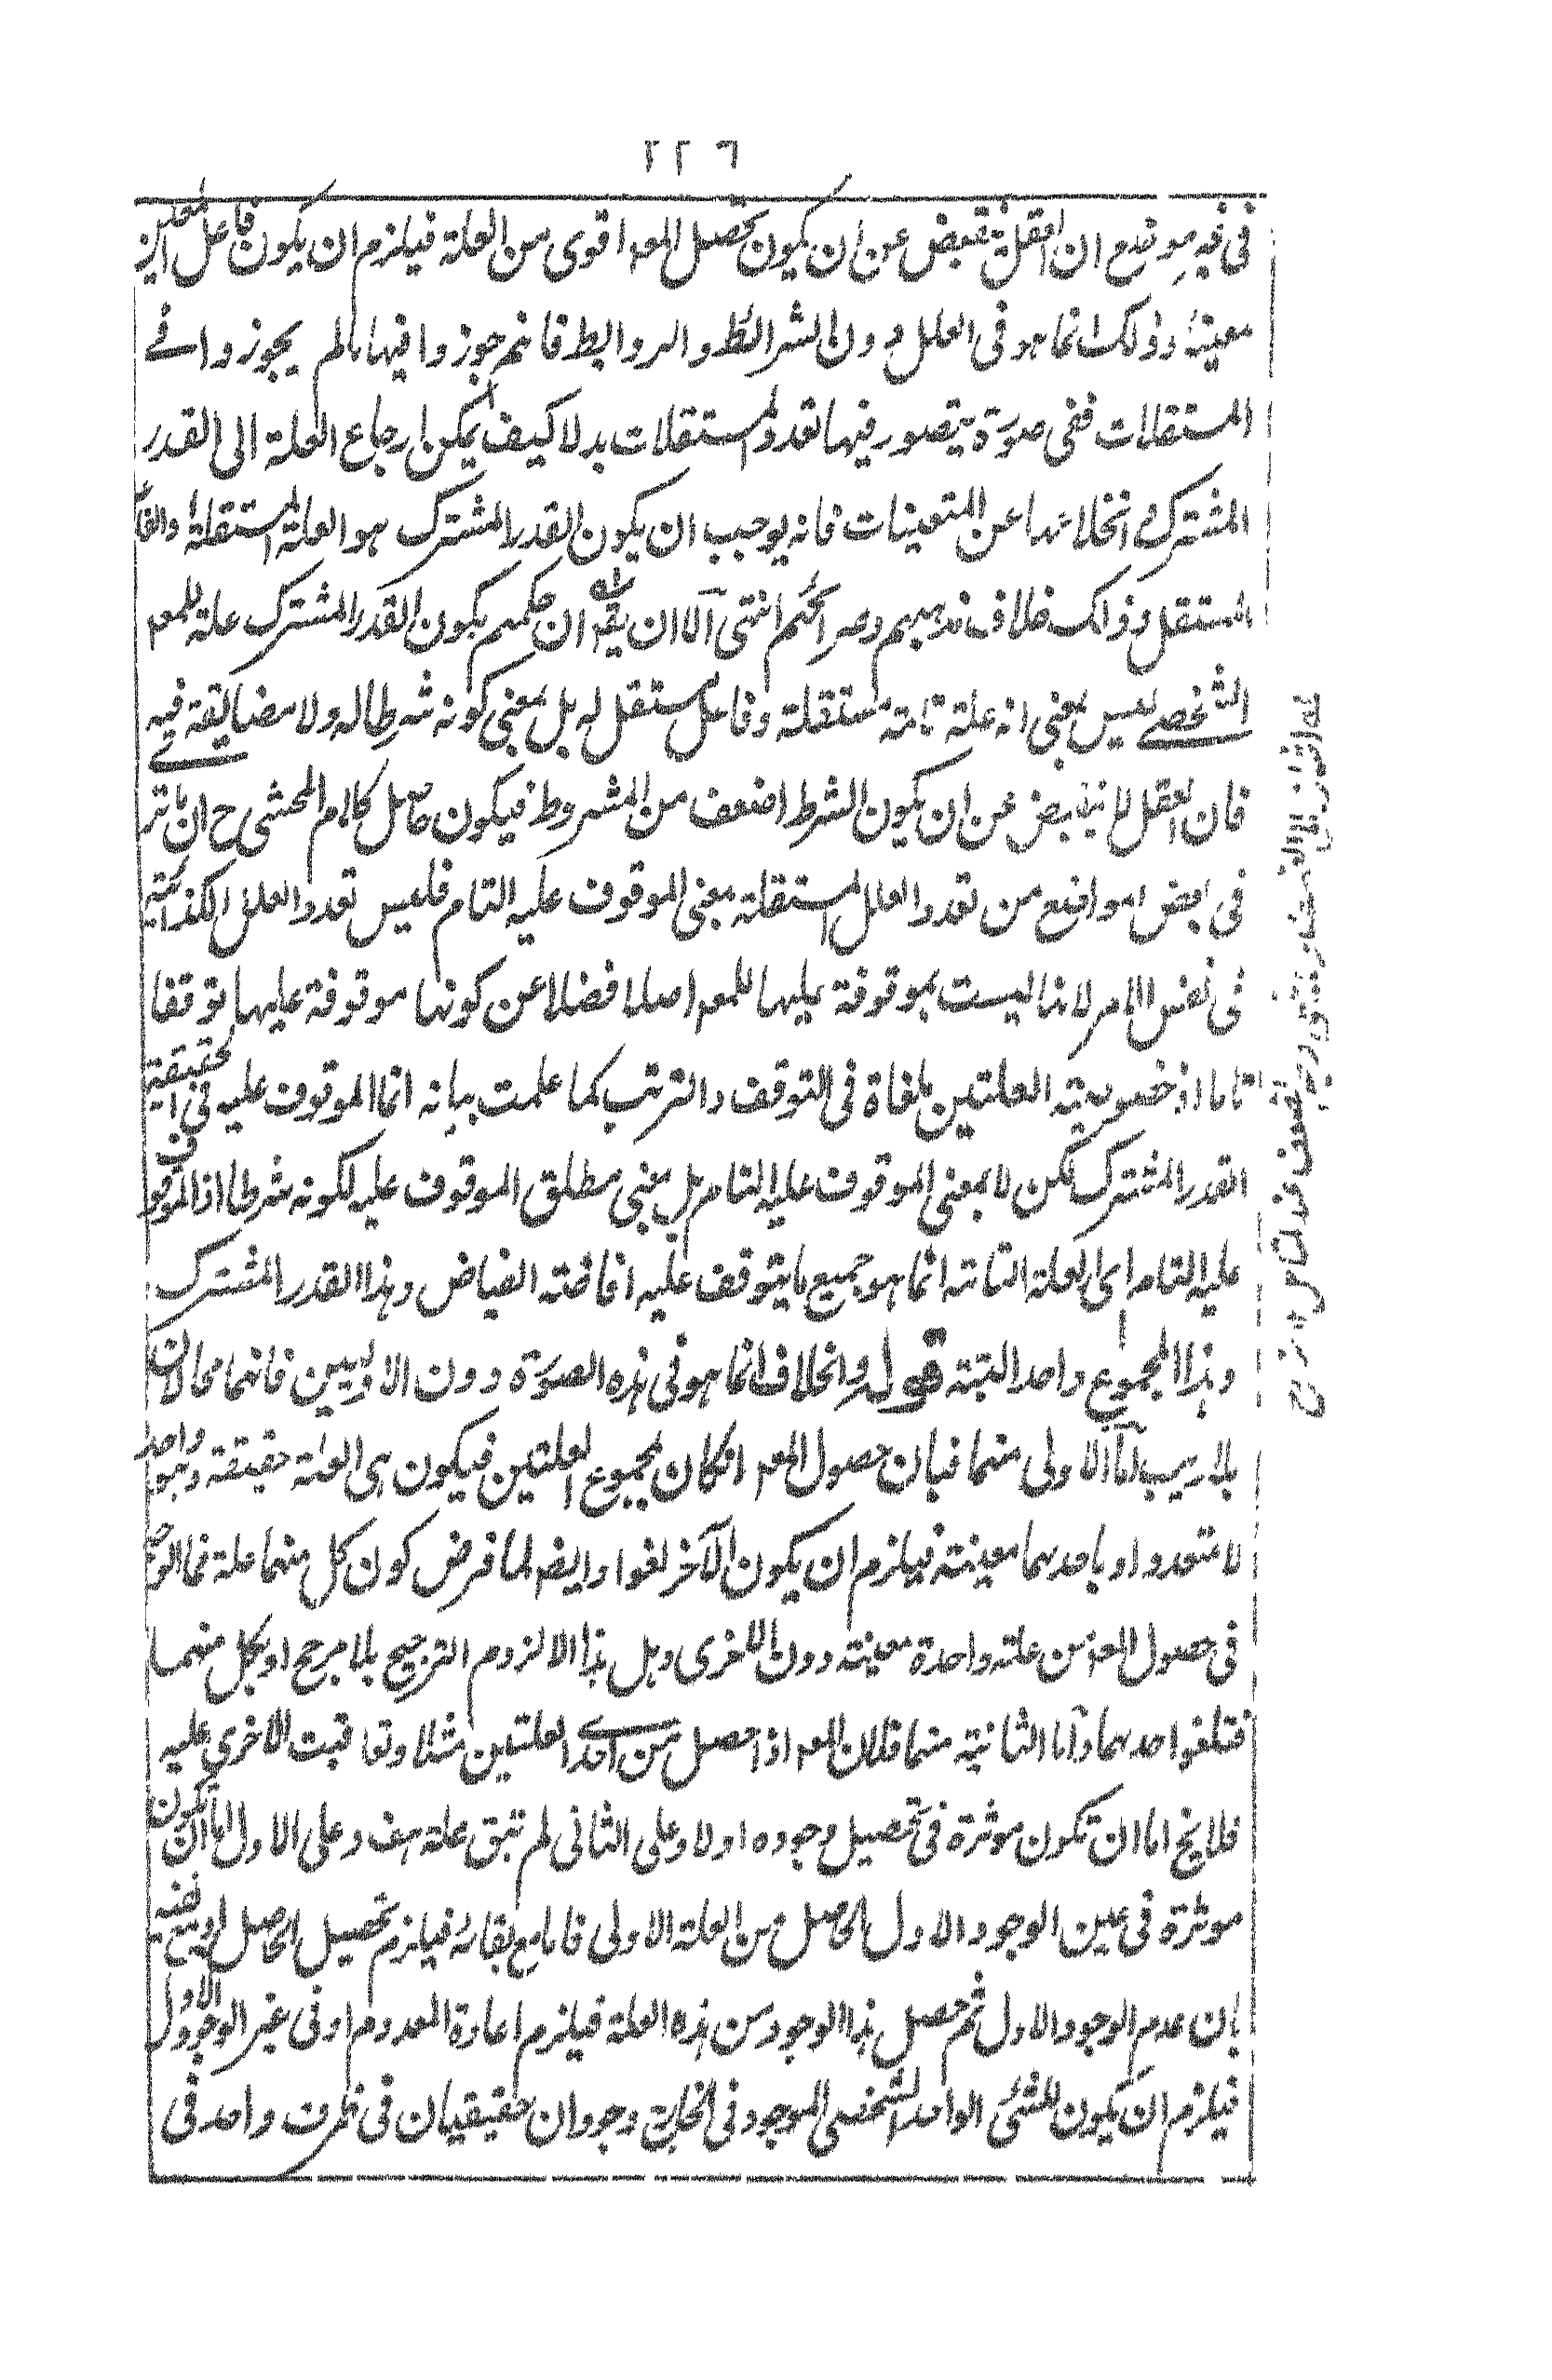 ٢٢٦
فى غير موضع ان العقل ينقبض عن ان يكون تحصل المعه اقوى من العلة فيلزم ان يكون فاعل المعلين
معينة وذلك انما هو فى العلل دون الشرائط والروابط فانهم جوزوا فيها مالم يجوزوا فے
المستقلات ففى صورة يتصور فيها تعدد المستقلات بدلا كيف يمكن ارجاع العلة الى القدر
المشترك وانخلاعها عن المتعينات فانه يوجب ان يكون القدر المشترك هو العلة المستقلة والفا
المستقل وذلك خلاف مذهبهم وصرائحهم انتهى الا ان يقه ان حكمهم بكون القدر المشترك علة للمعه
الشخصے ليس بمعنى انه علة تامة مستقلة وفاعل مستقل له بل بمعنى كونه شرطا له ولا مضايقة فيه
فان العقل لا ينقبض عن ان يكون الشرط اضعف من المشروط فيكون حاصل كلام المحشى ح ان ما ترے
فى بعض المواضع من تعدد العلل المستقلة بمعنى الموقوف عليه التام فليس تعدد العلل الكذائية
فى نفس الامر لانها ليست بموقوفة عليها للمعه اصلا فضلا عن كونها موقوفة عليها توقفا
تاما اذ خصوصية العلتين ملغاة فى التوقف والترتب كما علمت بيانه انما الموقوف عليه فى الحقيقة
القدر المشترك لكن لا بمعنى الموقوف عليه التام بل بمعنى مطلق الموقوف عليه لكونه شرطا اذ الموقوف
عليه التام اى العلة التامة انما هو جميع ما يتوقف عليه افاضة الفياض وهذا القدر المشترك
وهذا المجموع واحد البتة قوله والخلاف انما هو فى هذه الصورة دون الاوليين فانهما محالان
بلا ريب اما الاولى منهما فبان حصول المعه اكان بمجموع العلتين فيكون هى العلة حقيقة وهو واحد
لا متعدد او باحدهما معينة فيلزم ان يكون الآخر لغوا وايضه لما فرض كون كل منهما علة فما الوجه
فى حصول المعه من علة واحدة معينة دون الاخرى وهل هذا الا لزوم الترجيح بلا مرجح او بكل منهما
فتلغو احدهما واما الثانية منهما فلان المعه اذا حصل من احدے العلتين مثلا وتعاقبت الاخرى عليه
فلا يخ اما ان تكون موثرة فى تحصيل وجوده اولا وعلى الثانى لم تبق علة هف وعلى الاول اما ان تكون
موثرة فى عين الوجود الاول الحاصل من العلة الاولى فاما مع بقائه فيلزم تحصيل الحاصل او مع نفيه
بان عدم الوجود الاول ثم حصل هذا الوجود من هذه العلة فيلزم اعادة المعدوم او فى غير الوجود الاول
فيلزم ان يكون للشئ الواحد الشخصى الموجود فى الخارج وجودان حقيقيان فى ظرف واحد فى